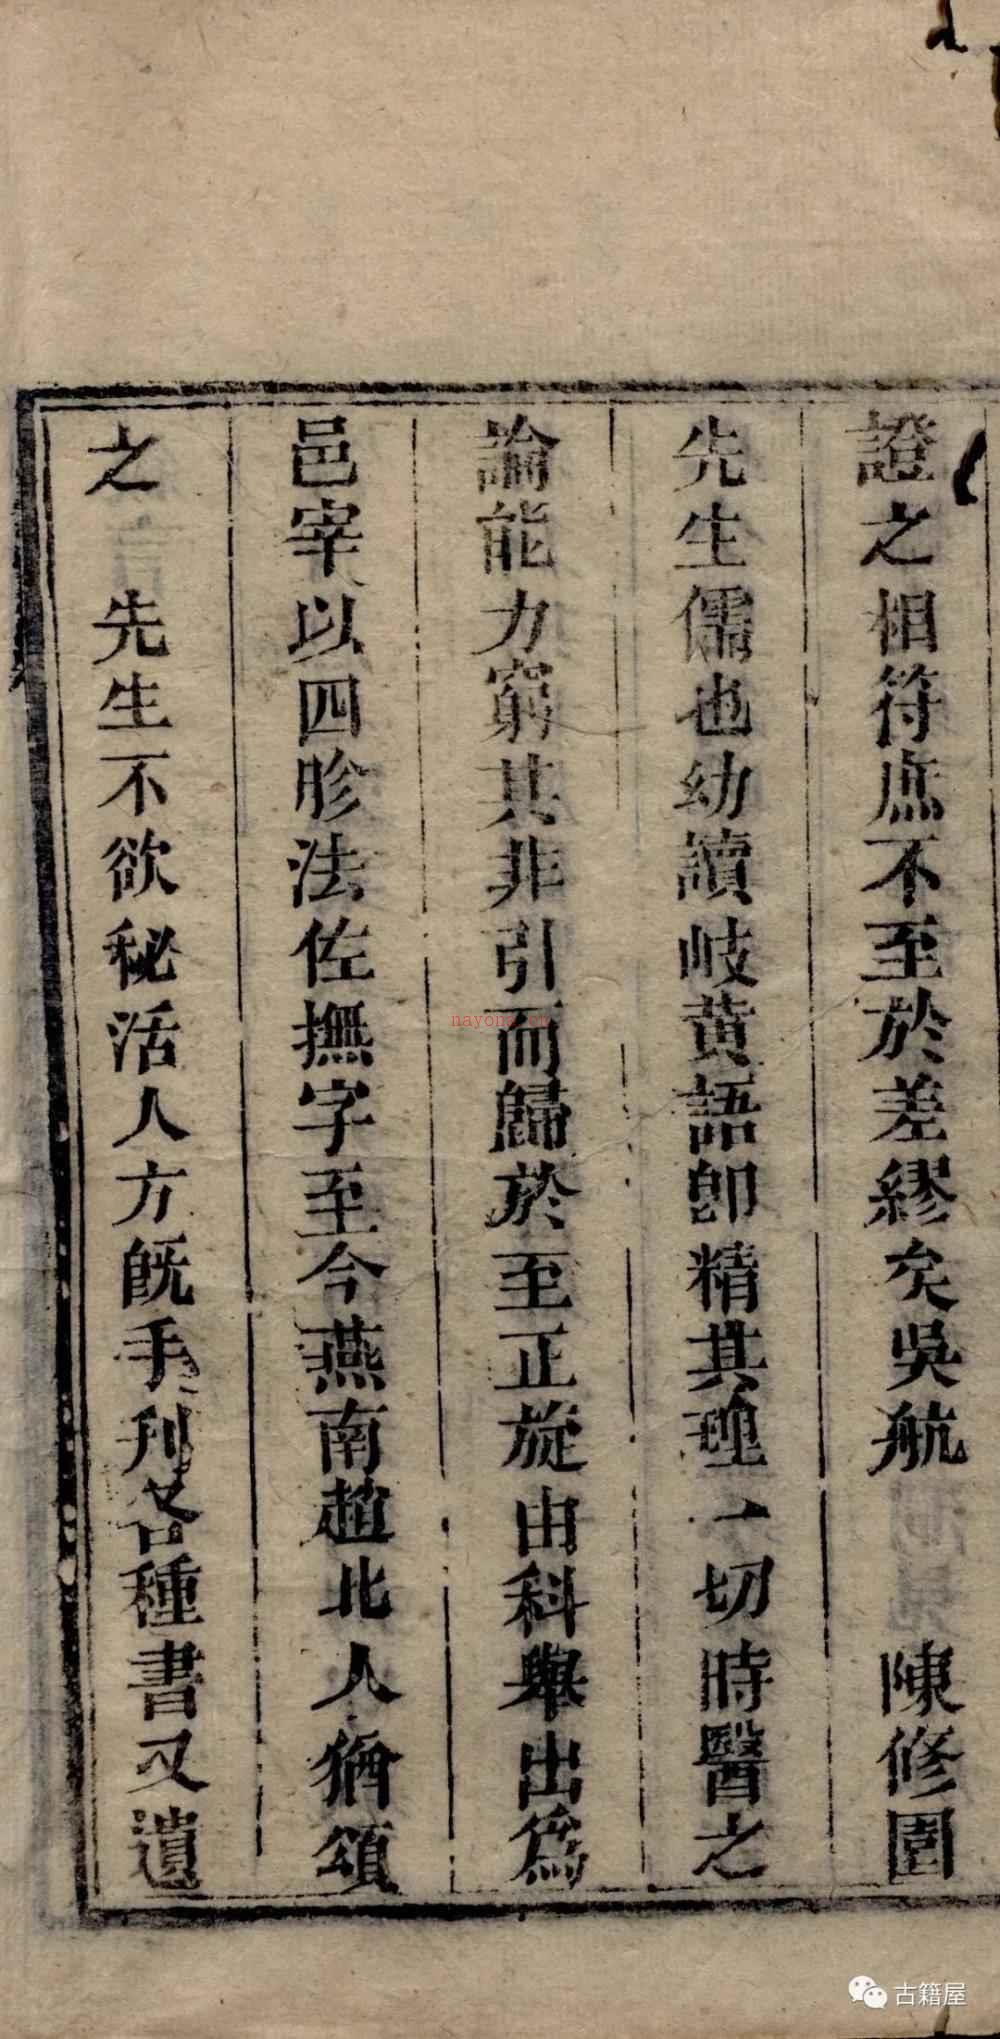 證之相符庶不至於差繆矣吳航 陳修園
先生儒也幼讀岐黃語卽精其理一切時醫之
論能力窮其非引而歸於至正旋由科舉出爲
邑宰以四胗法佐撫字至今燕南趙北人猶頌
之 先生不欲秘活人方旣手刋各種書又遺
nayona.cn
古籍屋